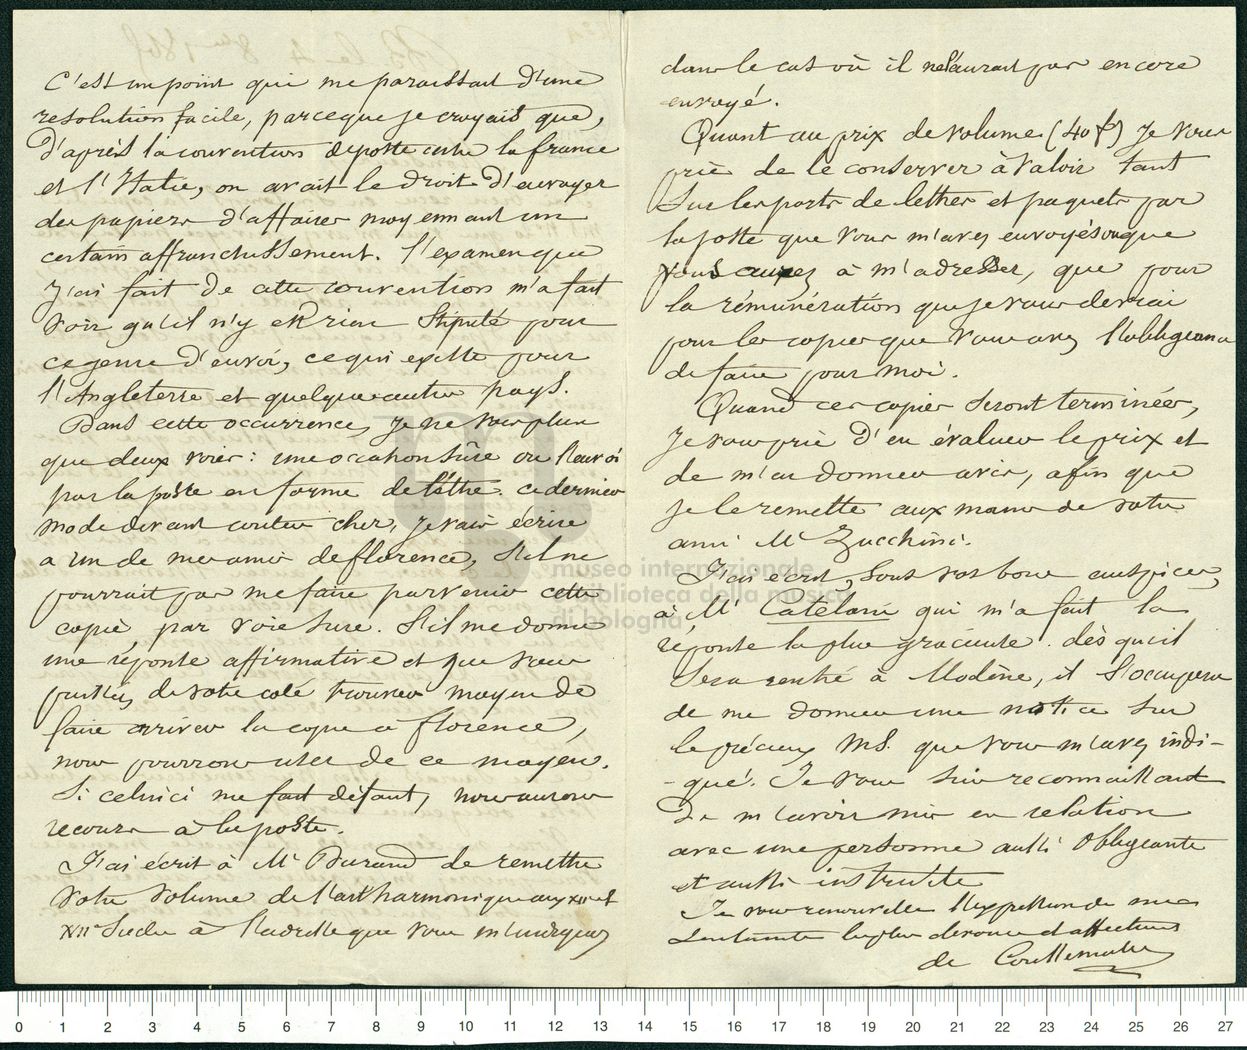 C'est un point qui me paraissait d'une
resolution facile, parceque je croyais que,
d'après la convention de poste entre la france
et l'Italie, on avait le droit d'envoyer
des papiers d'affaires moyennant un
certain affranchissement. L'examen que
j'ai fait de cette convention m'a fait
voir qu'il n'y est rien stipulé pour
ce genre d'envoi, ce qui existe pour
l'Angleterre et quelques autres pays.
Dans cette occurrence, je ne vois plus
que deux voies : une occasion sûre ou l'envoi
par la poste en forme de lettre. ce dernier
mode devant couter cher, je vais écrire
a un de mes amis de florence, s'il ne
pourrait pas me faire parvenir cette
copie, par voie sure. S'il me donne
une réponse affirmative et que vous
puissiez de votre coté trouver moyen de
faire arriver la copie à florence,
nous pourrons user de ce moyen.
Si celui ci me fait défaut, nous aurons
recours à la poste.
J'ai écrit à Mr Durand de remettre
votre volume de l'art harmonique aux XIIe et
XIIIe Siecles à l'adresse que vous m'indiquez
dans le cas où il ne l'aurait pas encore
envoyé.
Quant au prix de volume (40 f) je vous
prie de le conserver à valoir tant
sur les ports de lettres et paquets par
la poste que vous m'avez envoyés ou que
vous aurez à m'adresser, que pour
la rémunération que je vous devrai
pour les copies que vous avez l'obligeance
de faire pour moi.
Quand ces copies seront terminées,
je vous prie d'en évaluer le prix et
de m'en donner avis, afin que
je le remette aux mains de votre
ami Mr Zucchini.
J'ai écrit, sous vos bons auspices,
à Mr Catelani qui m'a fait la
réponse la plus gracieuse. dès qu'il
sera rentré à Modène, il s'occupera
de me donner une notice sur
le précieux MS. que vous m'avez indi-
-qué. Je vous suis reconnaissant
de m'avoir mis en relation
avec une personne aussi obligeante
et aussi instruite
Je vous renouvelle l'expression de mes
sentiments les plus devoués et affectueux
de Coussemaker
museo internazionale
e biblioteca della musica
di bologna
0 1 2 3 4 5 6 7 8 9 10 11 12 13 14 15 16 17 18 19 20 21 22 23 24 25 26 27